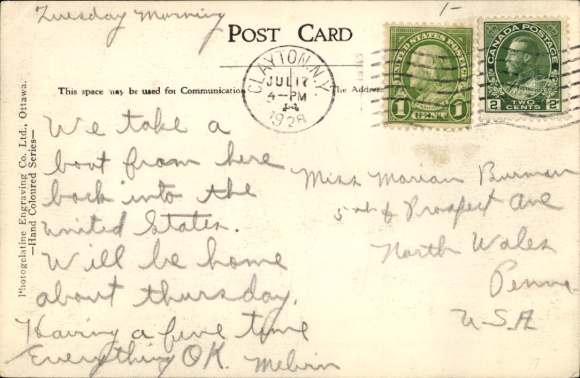 Tuesday Morning
1-
POST CARD
This space may be used for Communication
The Address
CLAYTON, N.Y.
JUL 17
4-PM
1928
UNITED STATES POSTAGE
1 CENT 1
CANADA POSTAGE
2 TWO CENTS 2
Photogelatine Engraving Co., Ltd., Ottawa.
—Hand Coloured Series—
We take a
boat from here
back into the
United States.
Will be home
about thursday.
Having a fine time
Everything OK. Melvin
Miss Marian Burman
5th & Prospect Ave
North Wales
Penna
U.S.A